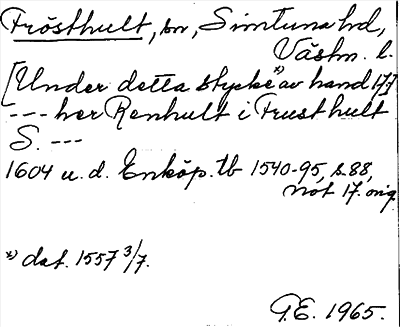 Frösthult, sn, Simtuna hd,
Västm. l.
[Under detta stycke x) av hand 17:]
--- her Renhult i Frusthult
S. ---
1604 u. d. Enköp. tb 1540-95, s. 88,
not 17. orig.
x) dat. 1557 3/7.
G.E. 1965.